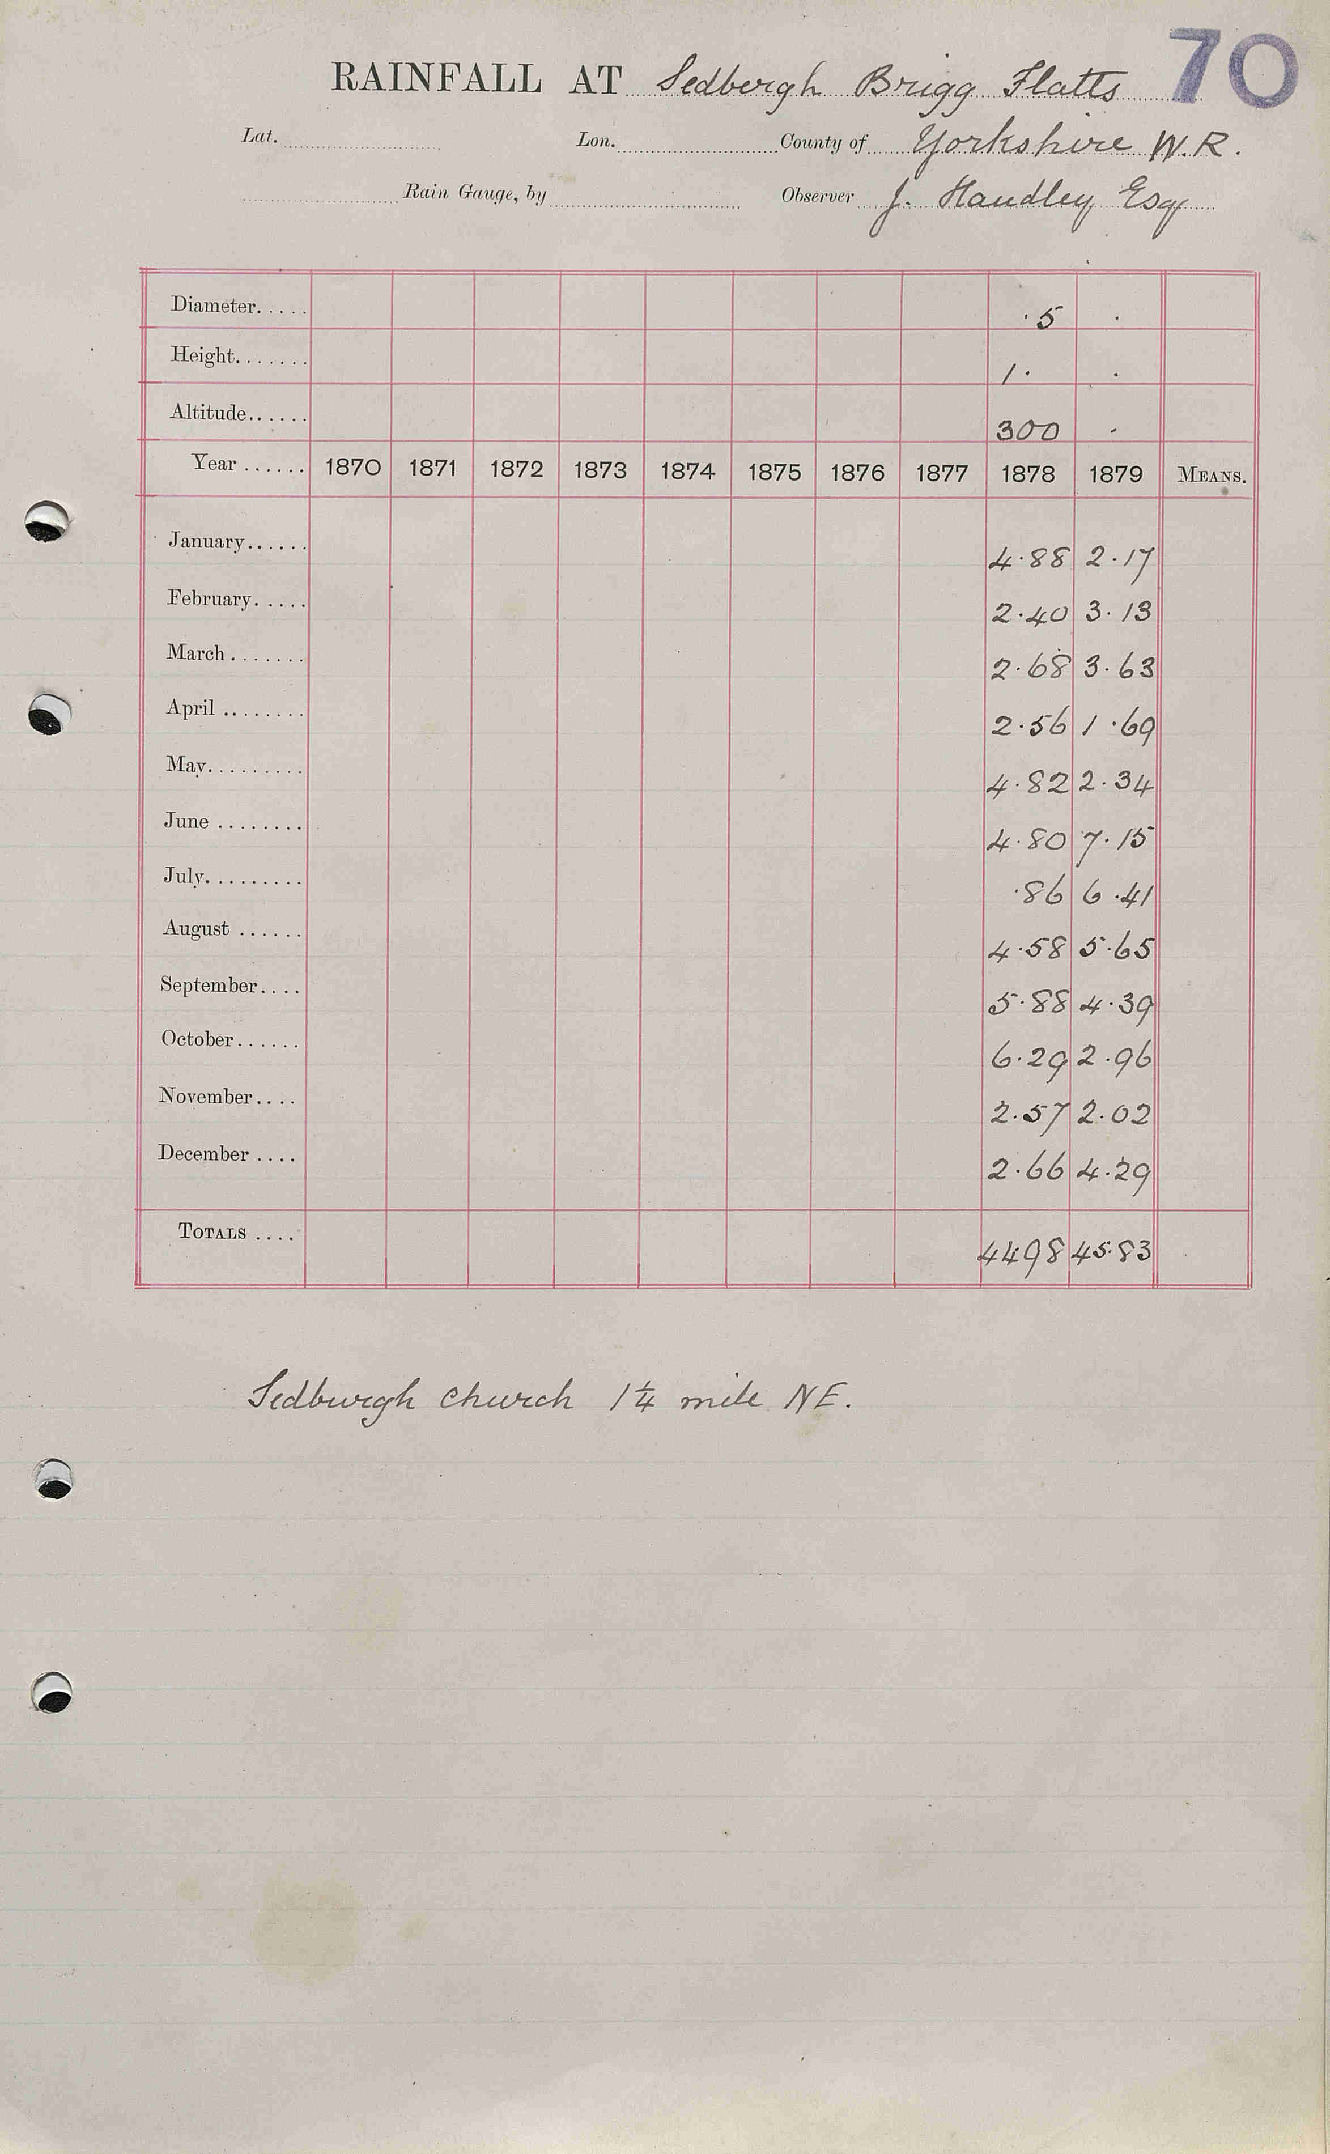 70
RAINFALL AT Sedbergh Brigg Flatts
Lat. Lon. County of Yorkshire W.R.
Rain Gauge, by Observer J. Handley Esq
Diameter..... ·5 ·
Height....... 1· ·
Altitude...... 300 ·
Year...... 1870 1871 1872 1873 1874 1875 1876 1877 1878 1879 MEANS.
January...... 4·88 2·17
February..... 2·40 3·13
March....... 2·68 3·63
April........ 2·56 1·69
May......... 4·82 2·34
June........ 4·80 7·15
July......... ·86 6·41
August...... 4·58 5·65
September.... 5·88 4·39
October...... 6·29 2·96
November.... 2·57 2·02
December.... 2·66 4·29
TOTALS.... 4498 45·83
Sedburgh church 1¼ mile NE.